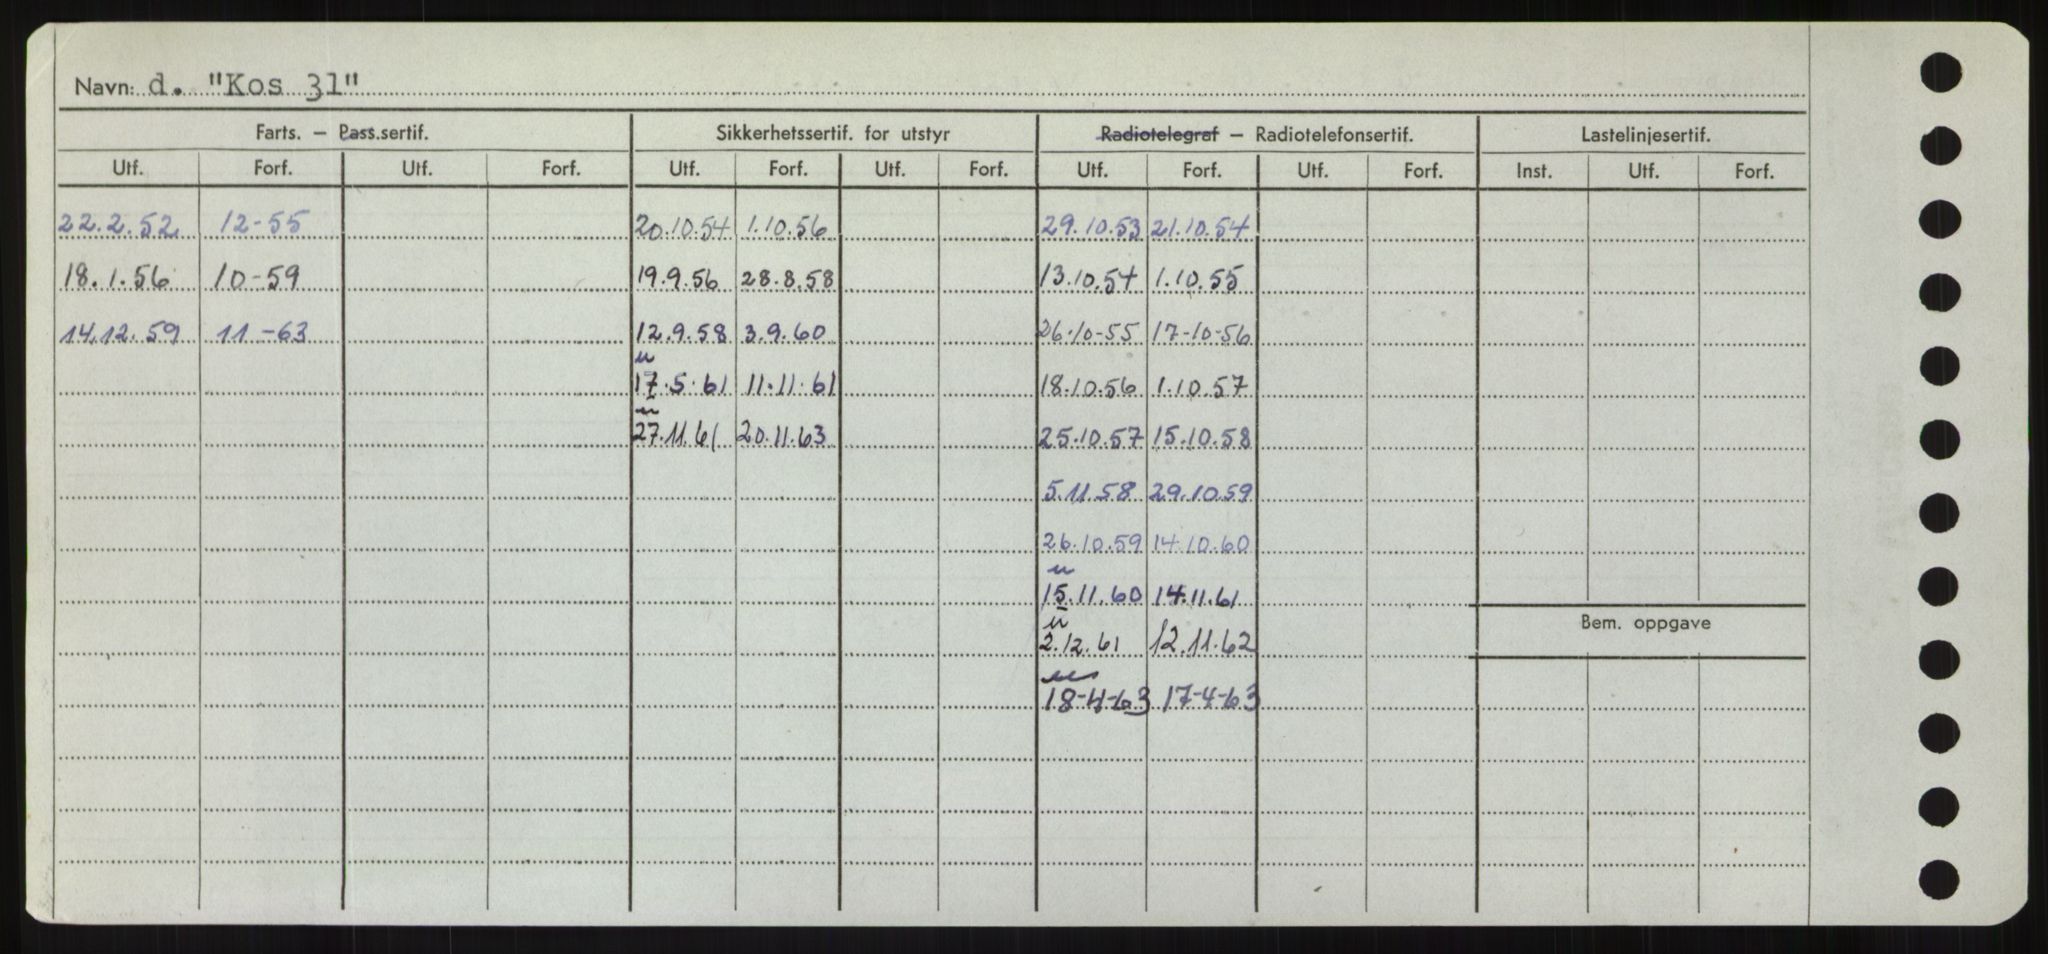 Navn: d. "Kos 31"
Farts. – Pass.sertif. Sikkerhetssertif. for utstyr Radiotelegraf – Radiotelefonsertif. Lastelinjesertif.
Utf. Forf. Utf. Forf. Utf. Forf. Utf. Forf. Utf. Forf. Utf. Forf. Inst. Utf. Forf.
22.2.52 12-55 20.10.54 1.10.56 29.10.53 21.10.54
18.1.56 10-59 19.9.56 28.8.58 13.10.54 1.10.55
14.12.59 11-63 12.9.58 3.9.60 26-10-55 17-10-56
17.5.61 11.11.61 18.10.56 1.10.57
27.11.61 20.11.63 25.10.57 15.10.58
5.11.58 29.10.59
26.10.59 14.10.60
15.11.60 14.11.61
Bem. oppgave
2.12.61 12.11.62
18-4-63 17-4-63